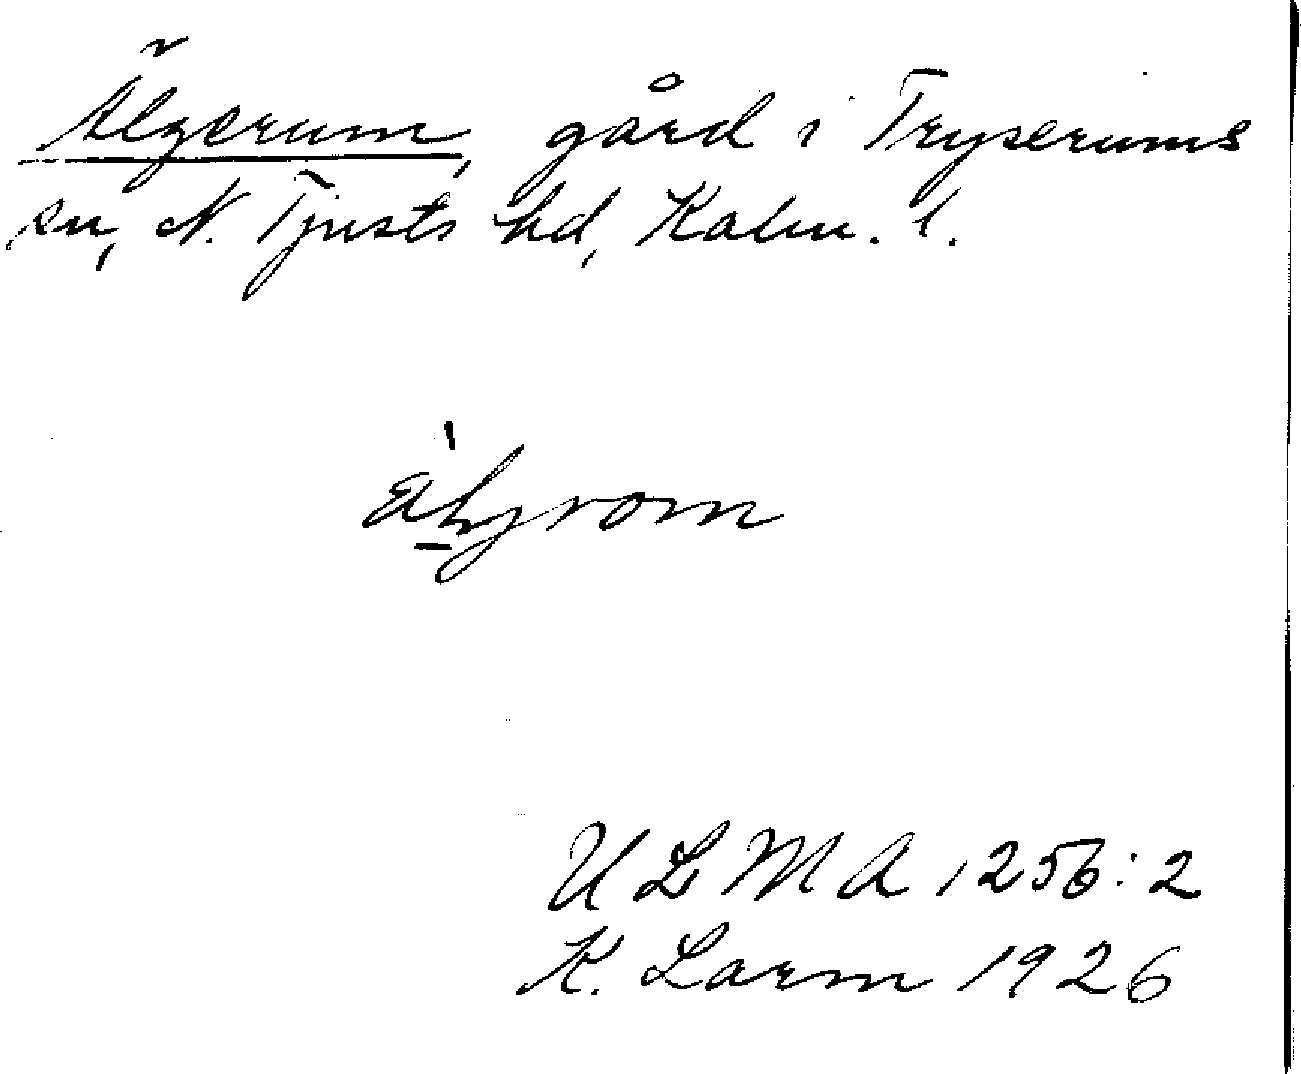 Älgerum, gård i Tryserums
sn, N. Tjusts hd, Kalm. l.
U L M A 1256:2
K. Larm 1926